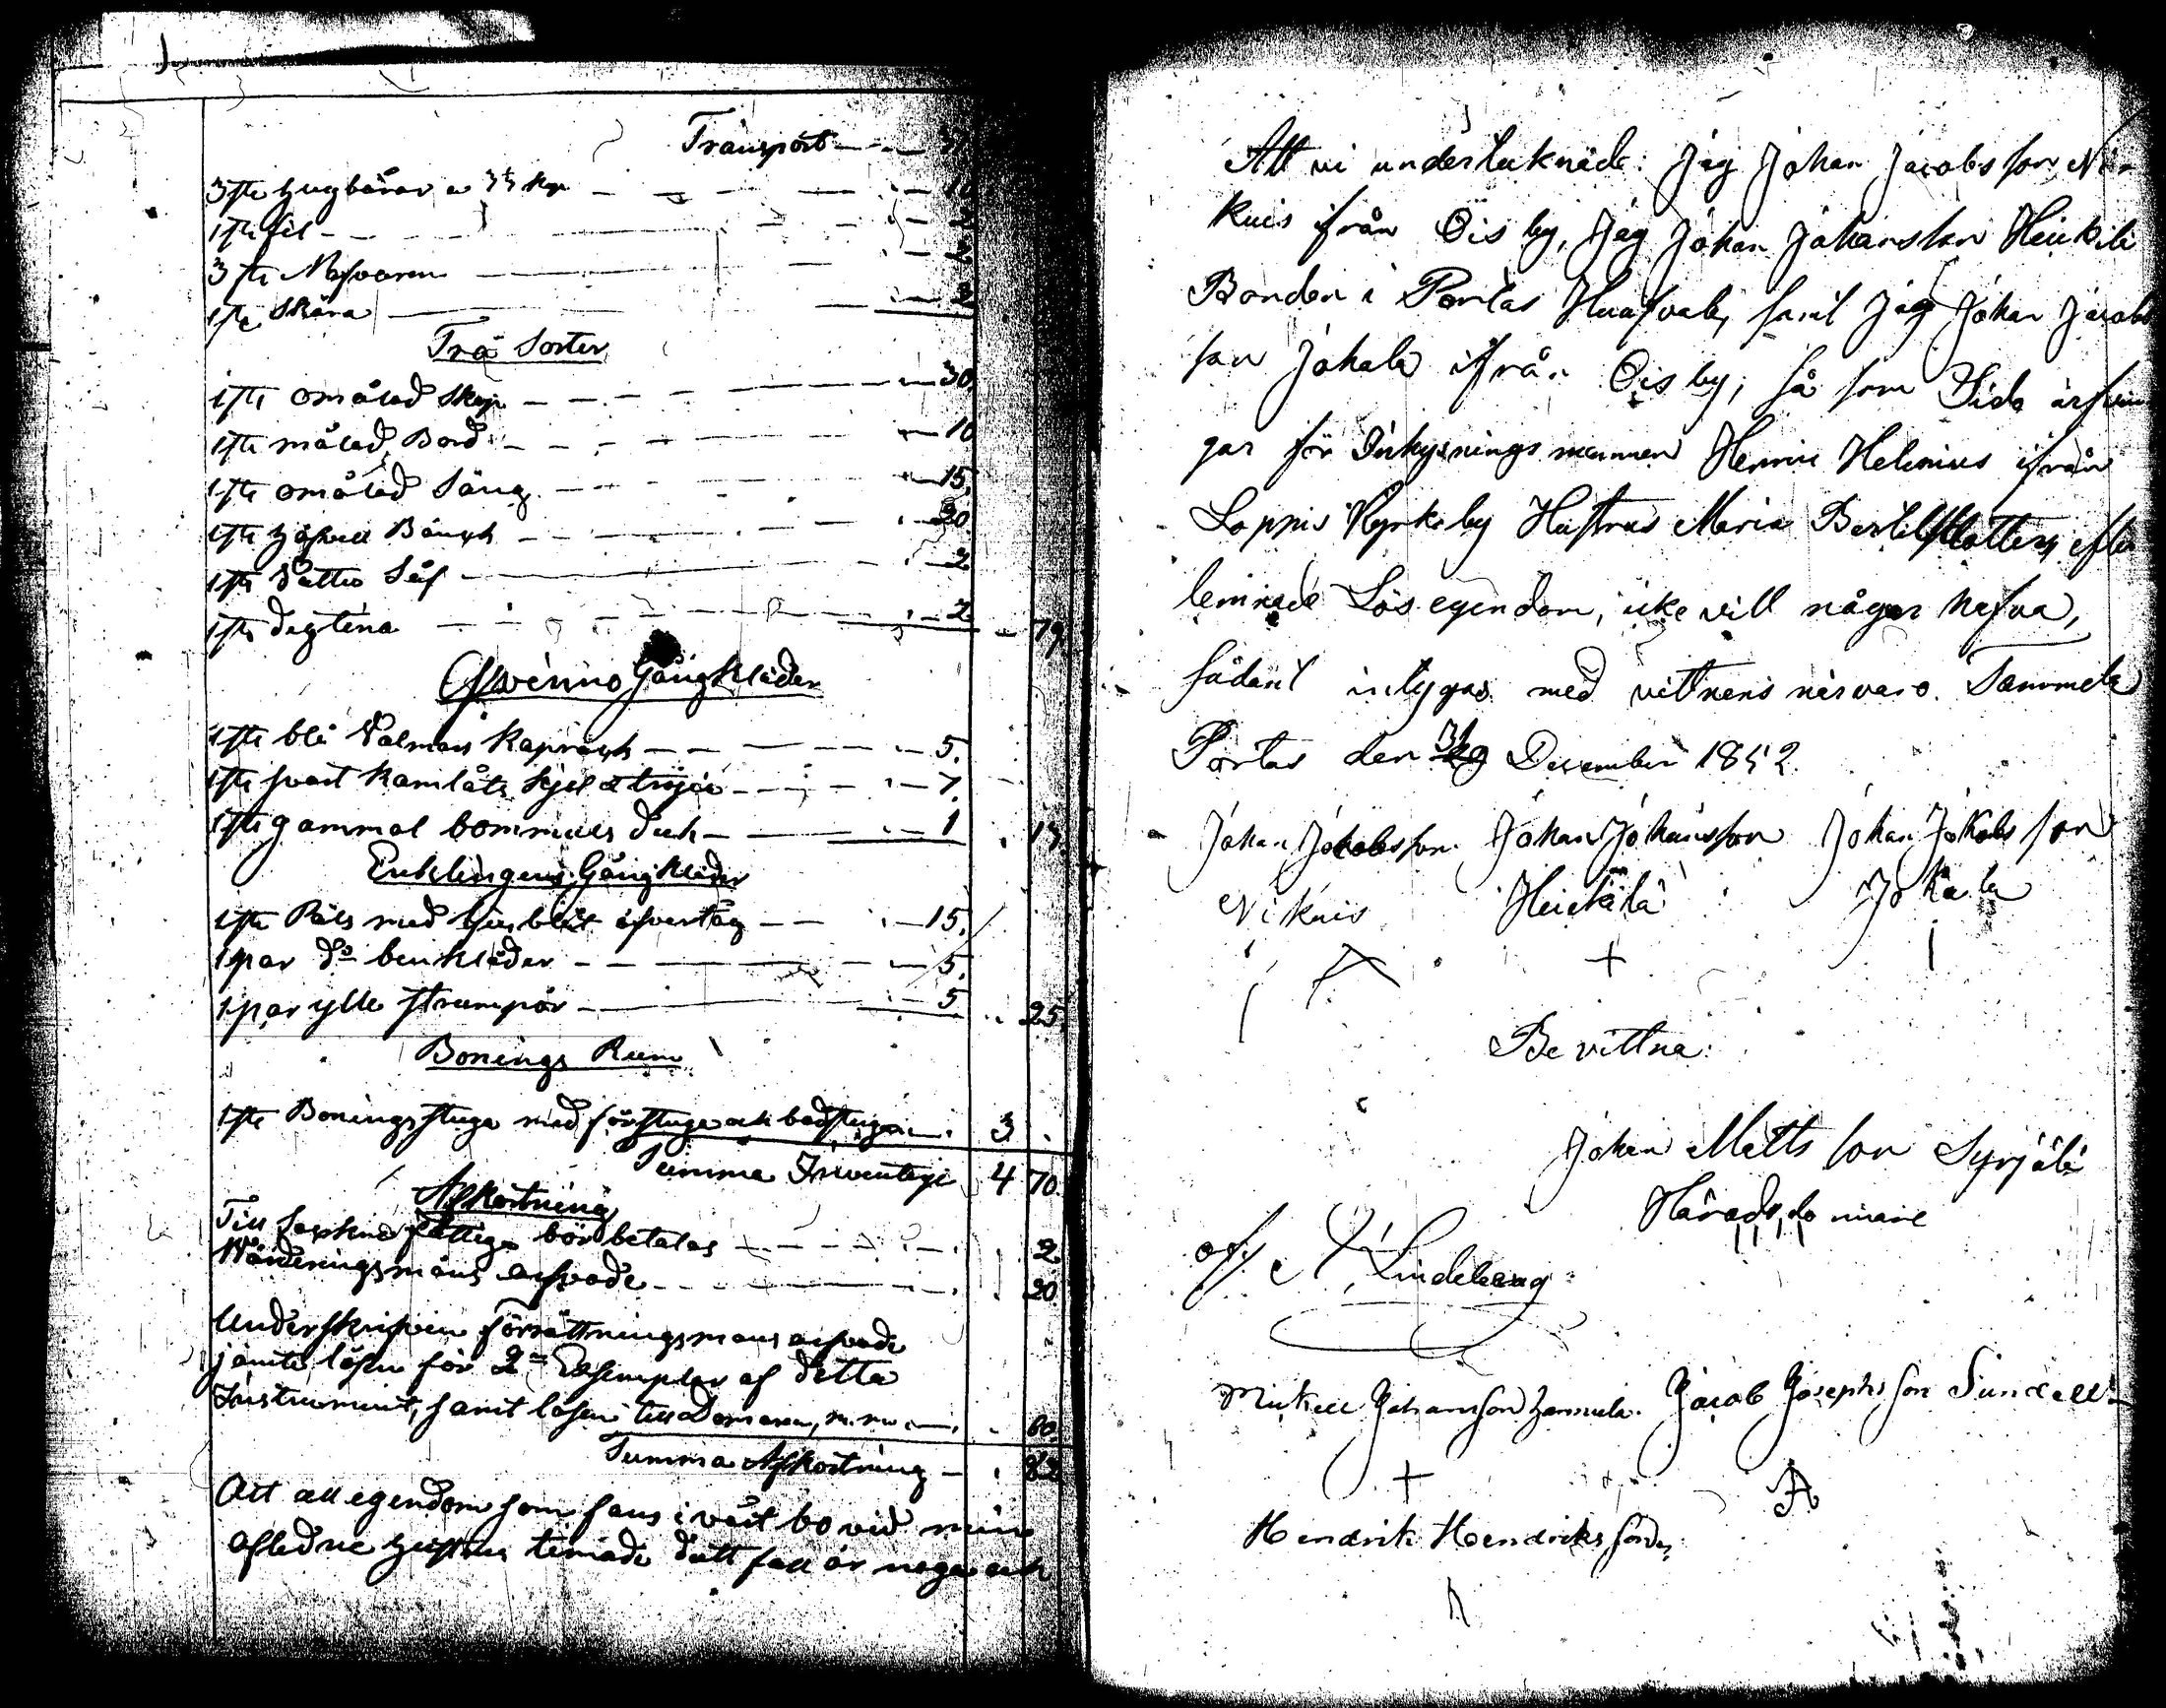 Transport
3 st: hugbårar a 3½ kop 10
1 st: fil 2
3 st: Nafvaren 2
1 st: Skära 2
Trä Sorter
1 st: omålad Skop 30
1 st: målad Bord 10
1 st: omålad Säng 15
1 st: Bänck 20
1 st: Vatten Så 2
1 st: degtina 2 79
Qwinno Gångkläder
1 st: blå Valmars Kaprååck 5.
1 st: svart Kamlåts Kjol & tröja 7.
1 st: gammal bommuls duk 1 13.
Enklingens Gångkläder
1 st: Päls med blåt öfvertåg 15.
1 par do benkläder 5.
1 par ylle strumpor 5 25
Bonings Rum
1 st: Boningsstuga med förstuga och badstuga 3
Summa Inventarii 4 70
Afkortning
Till Socknens fattiga bör betalas 2
Wärderingsmäns arfvode 20
Underskrifven Förrättningsmans arfvode
jämte lösen för 2ne Exsemplar af detta
Instrument, samt lösen till Domaren, m.m. 60.
Summa Afkortning 82
Att all egendom som fans i vårt bo vid min
aflednе hustrus timade dött fall är noga och
Att vi undertecknade: Jag Johan Jacobsson Ni
kuis ifrån Ois by, Jag Johan Johansson Heikilä
Bonden i Pontas by, samt Jag Johan Jacobs
son Jokala ifrån Ois by, så som Sido arfvin
gar för Inhysnings mannen Henric Helenius ifrån
Loppis Kyrkoby Hustrus Maria Bertilsdotters efter
lemnade Lös egendom, icke vill något hafva,
sådant intygas med vittnens närvaro. Sammela
Portas den 31 December 1852
Johan Jacobsson Johan Johansson Johan Jokabsson
Nikuis Heickilä Jokala
+
Bevittna:
Johan Mattsson Syrjälä
Häradsdomare
A Lindeberg
Mickell Johansson Jacob Josephsson Sundell
+
Hendrik Hendriksson